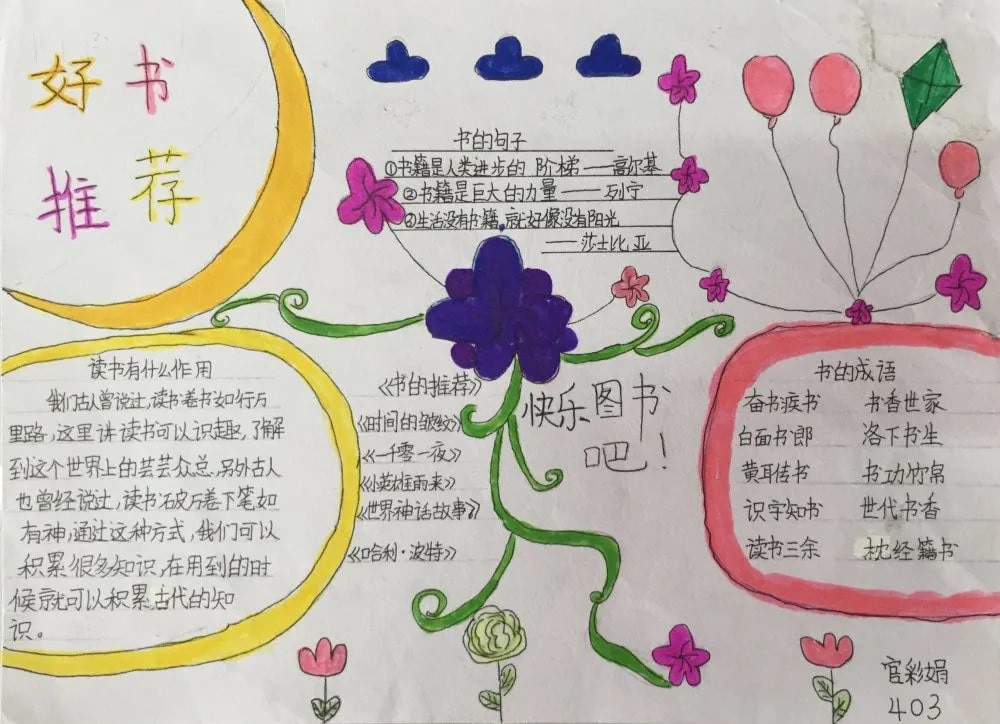 好书
推荐
书的句子
①书籍是人类进步的 阶梯——高尔基
②书籍是巨大的力量——列宁
③生活没有书籍,就好像没有阳光
——莎士比亚
读书有什么作用
我们古人曾说过,读书卷书如行万
里路,这里讲读书可以识趣,了解
到这个世界上的芸芸众总,另外古人
也曾经说过,读书破万卷下笔如
有神,通过这种方式,我们可以
积累很多知识,在用到的时
候就可以积累古代的知
识。
《书的推荐》
《时间的皱纹》
《一千零一夜》
《小英雄雨来》
《世界神话故事》
《哈利·波特》
快乐图书
吧!
书的成语
奋书疾书 书香世家
白面书郎 洛下书生
黄耳传书 书功竹帛
识字知书 世代书香
读书三余 枕经籍书
官彩娟
403